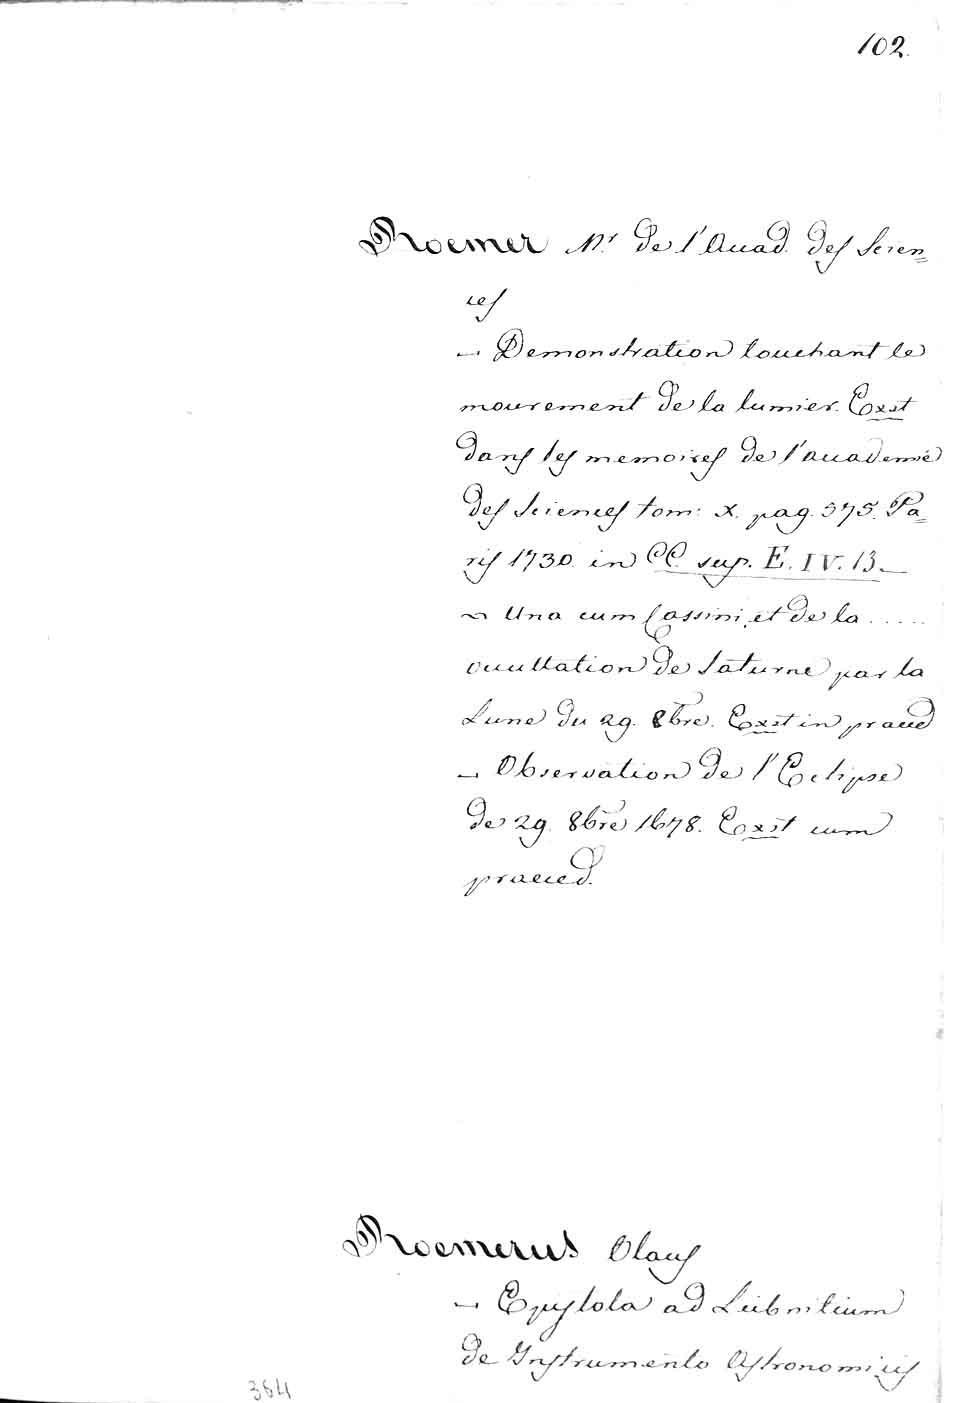 102.
Roemer Mr de l'Acad. des Scien=
ces
— Demonstration touchant le
mouvement de la lumier. Exst
dans les memoires de l'academie
des Sciences tom: X. pag. 575. Pa=
ris 1730. in CC. sup. E. IV. 13.
— Una cum Cassini, et de la .....
occultation de Saturne par la
Lune du 29. 8bre. Exst in praeced
— Observation de l'Eclipse
de 29. 8bre 1678. Exst cum
praeced.
Roemerus Olaus
— Epistola ad Leibnitium
de Instrumento Astronomicis
364